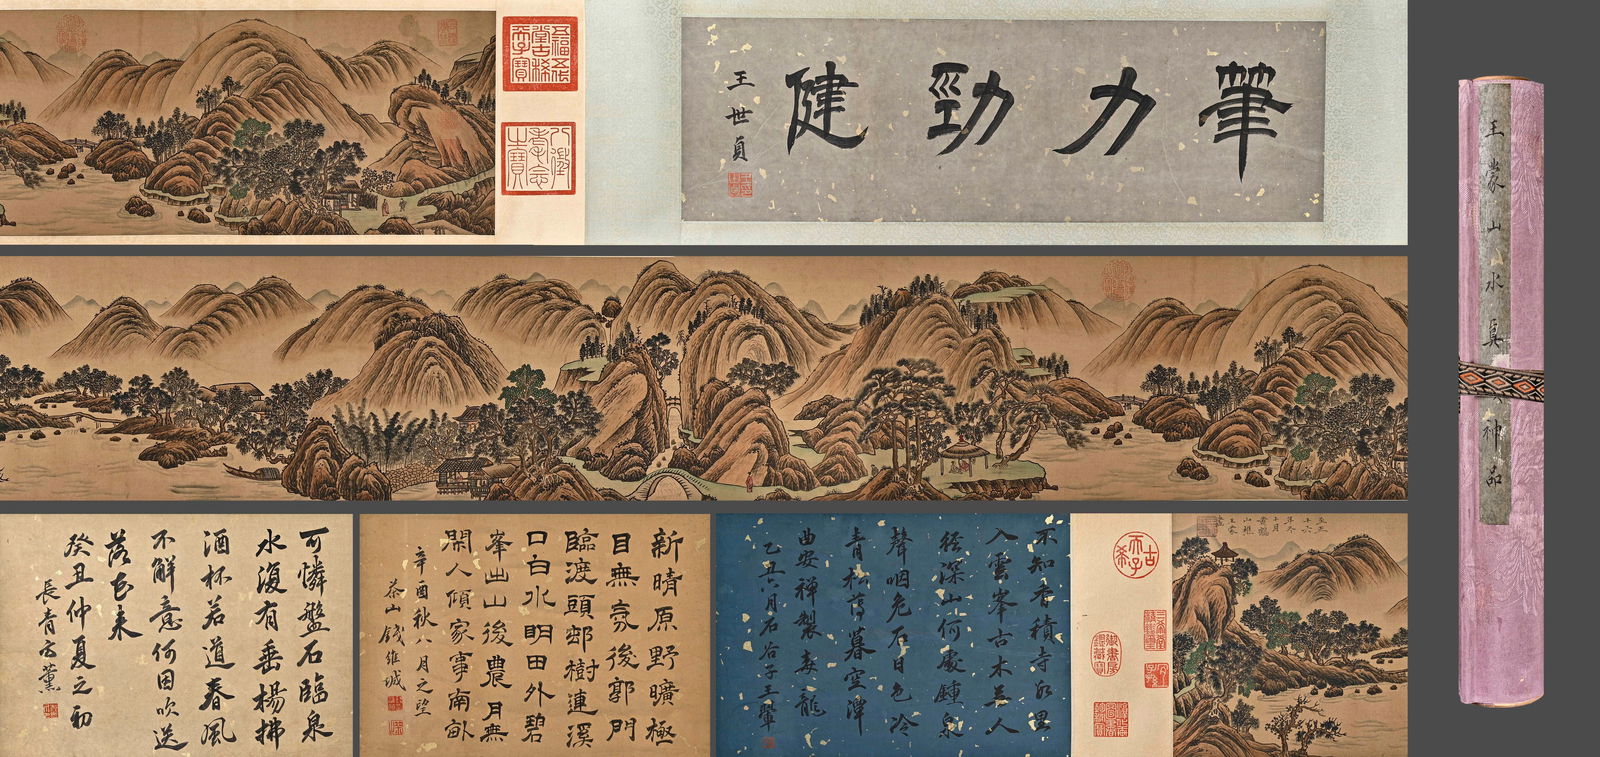 筆力勁健
王世貞
五福五代堂古稀天子寶
八徵耄念之寶
王蒙山水真神品
古希天子
不知香積寺數里
入雲峰古木無人
徑深山何處鍾泉
聲咽危石日色冷
青松薄暮空潭
曲安禪製毒龍
乙丑六月石谷子王翬
新晴原野曠極
目無氛後郭門
臨渡頭邨樹連溪
口白水明田外碧
峯出山後農月無
閑人傾家事南畝
辛酉秋八月之望
茶山錢維城
可憐盤石臨泉
水復有垂楊拂
酒杯若道春風
不解意何因吹送
落花來
癸丑仲夏之初
長青方薰